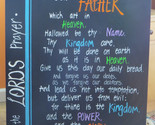 The LORD'S Prayer
FATHER
which art in
Heaven,
Hallowed be thy Name.
Thy Kingdom come
Thy will be done on earth
as it is in Heaven.
Give us this day our daily bread
and forgive us our debts,
as we forgive our debtors.
And lead us not into temptation,
but deliver us from evil:
for thine is the Kingdom,
and the POWER,
and the